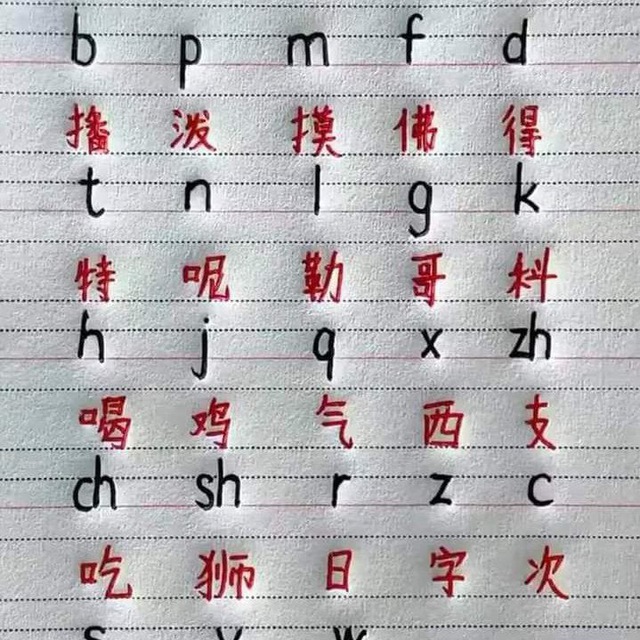 b p m f d
播 泼 摸 佛 得
t n l g k
特 呢 勒 哥 科
h j q x zh
喝 鸡 气 西 支
ch sh r z c
吃 狮 日 字 次